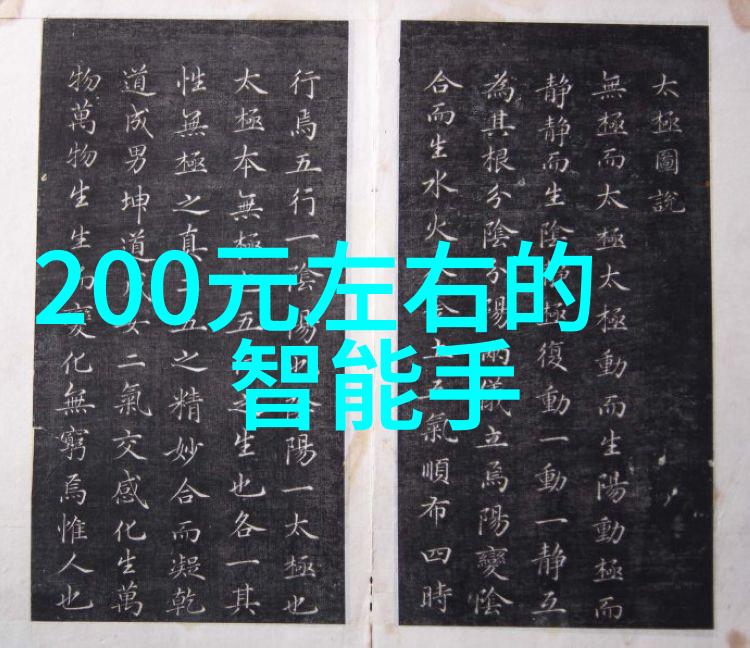 太極圖說
無極而太極太極動而生陽動極而
静静而生陰極復動一動一静互
為其根分陰分陽兩儀立焉陽變陰
合而生水火氣順布四時
行焉五行一陰陽也陰陽一太極也
太極本無極五之生也各一其
性無極之真五之精妙合而凝乾
道成男坤道女二氣交感化生萬
物萬物生生而變化無窮焉惟人也
200元左右的
智能手